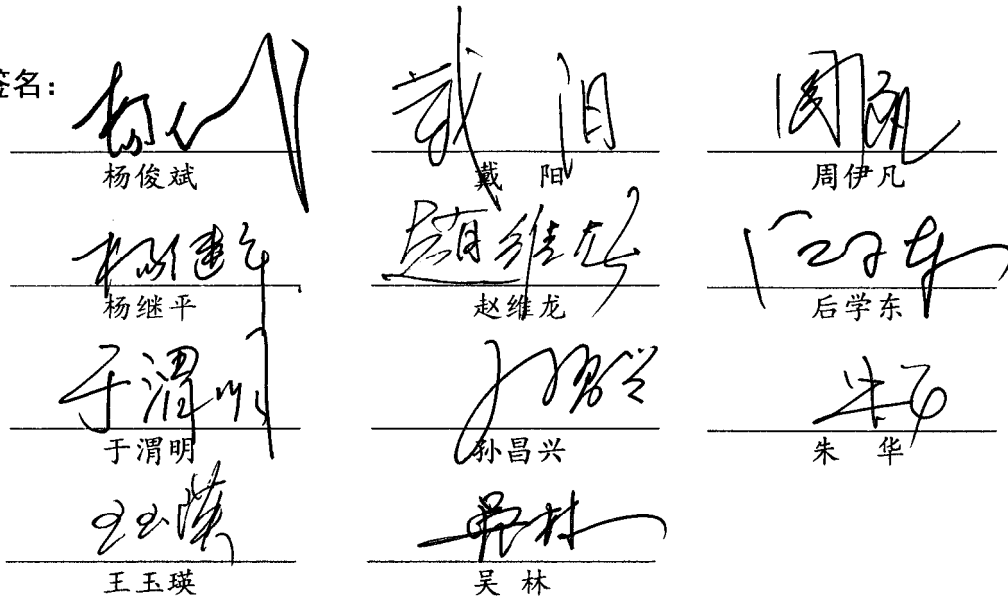 签名：
杨俊斌 戴 阳 周伊凡
杨继平 赵维龙 后学东
于渭明 孙昌兴 朱 华
王玉瑛 吴 林